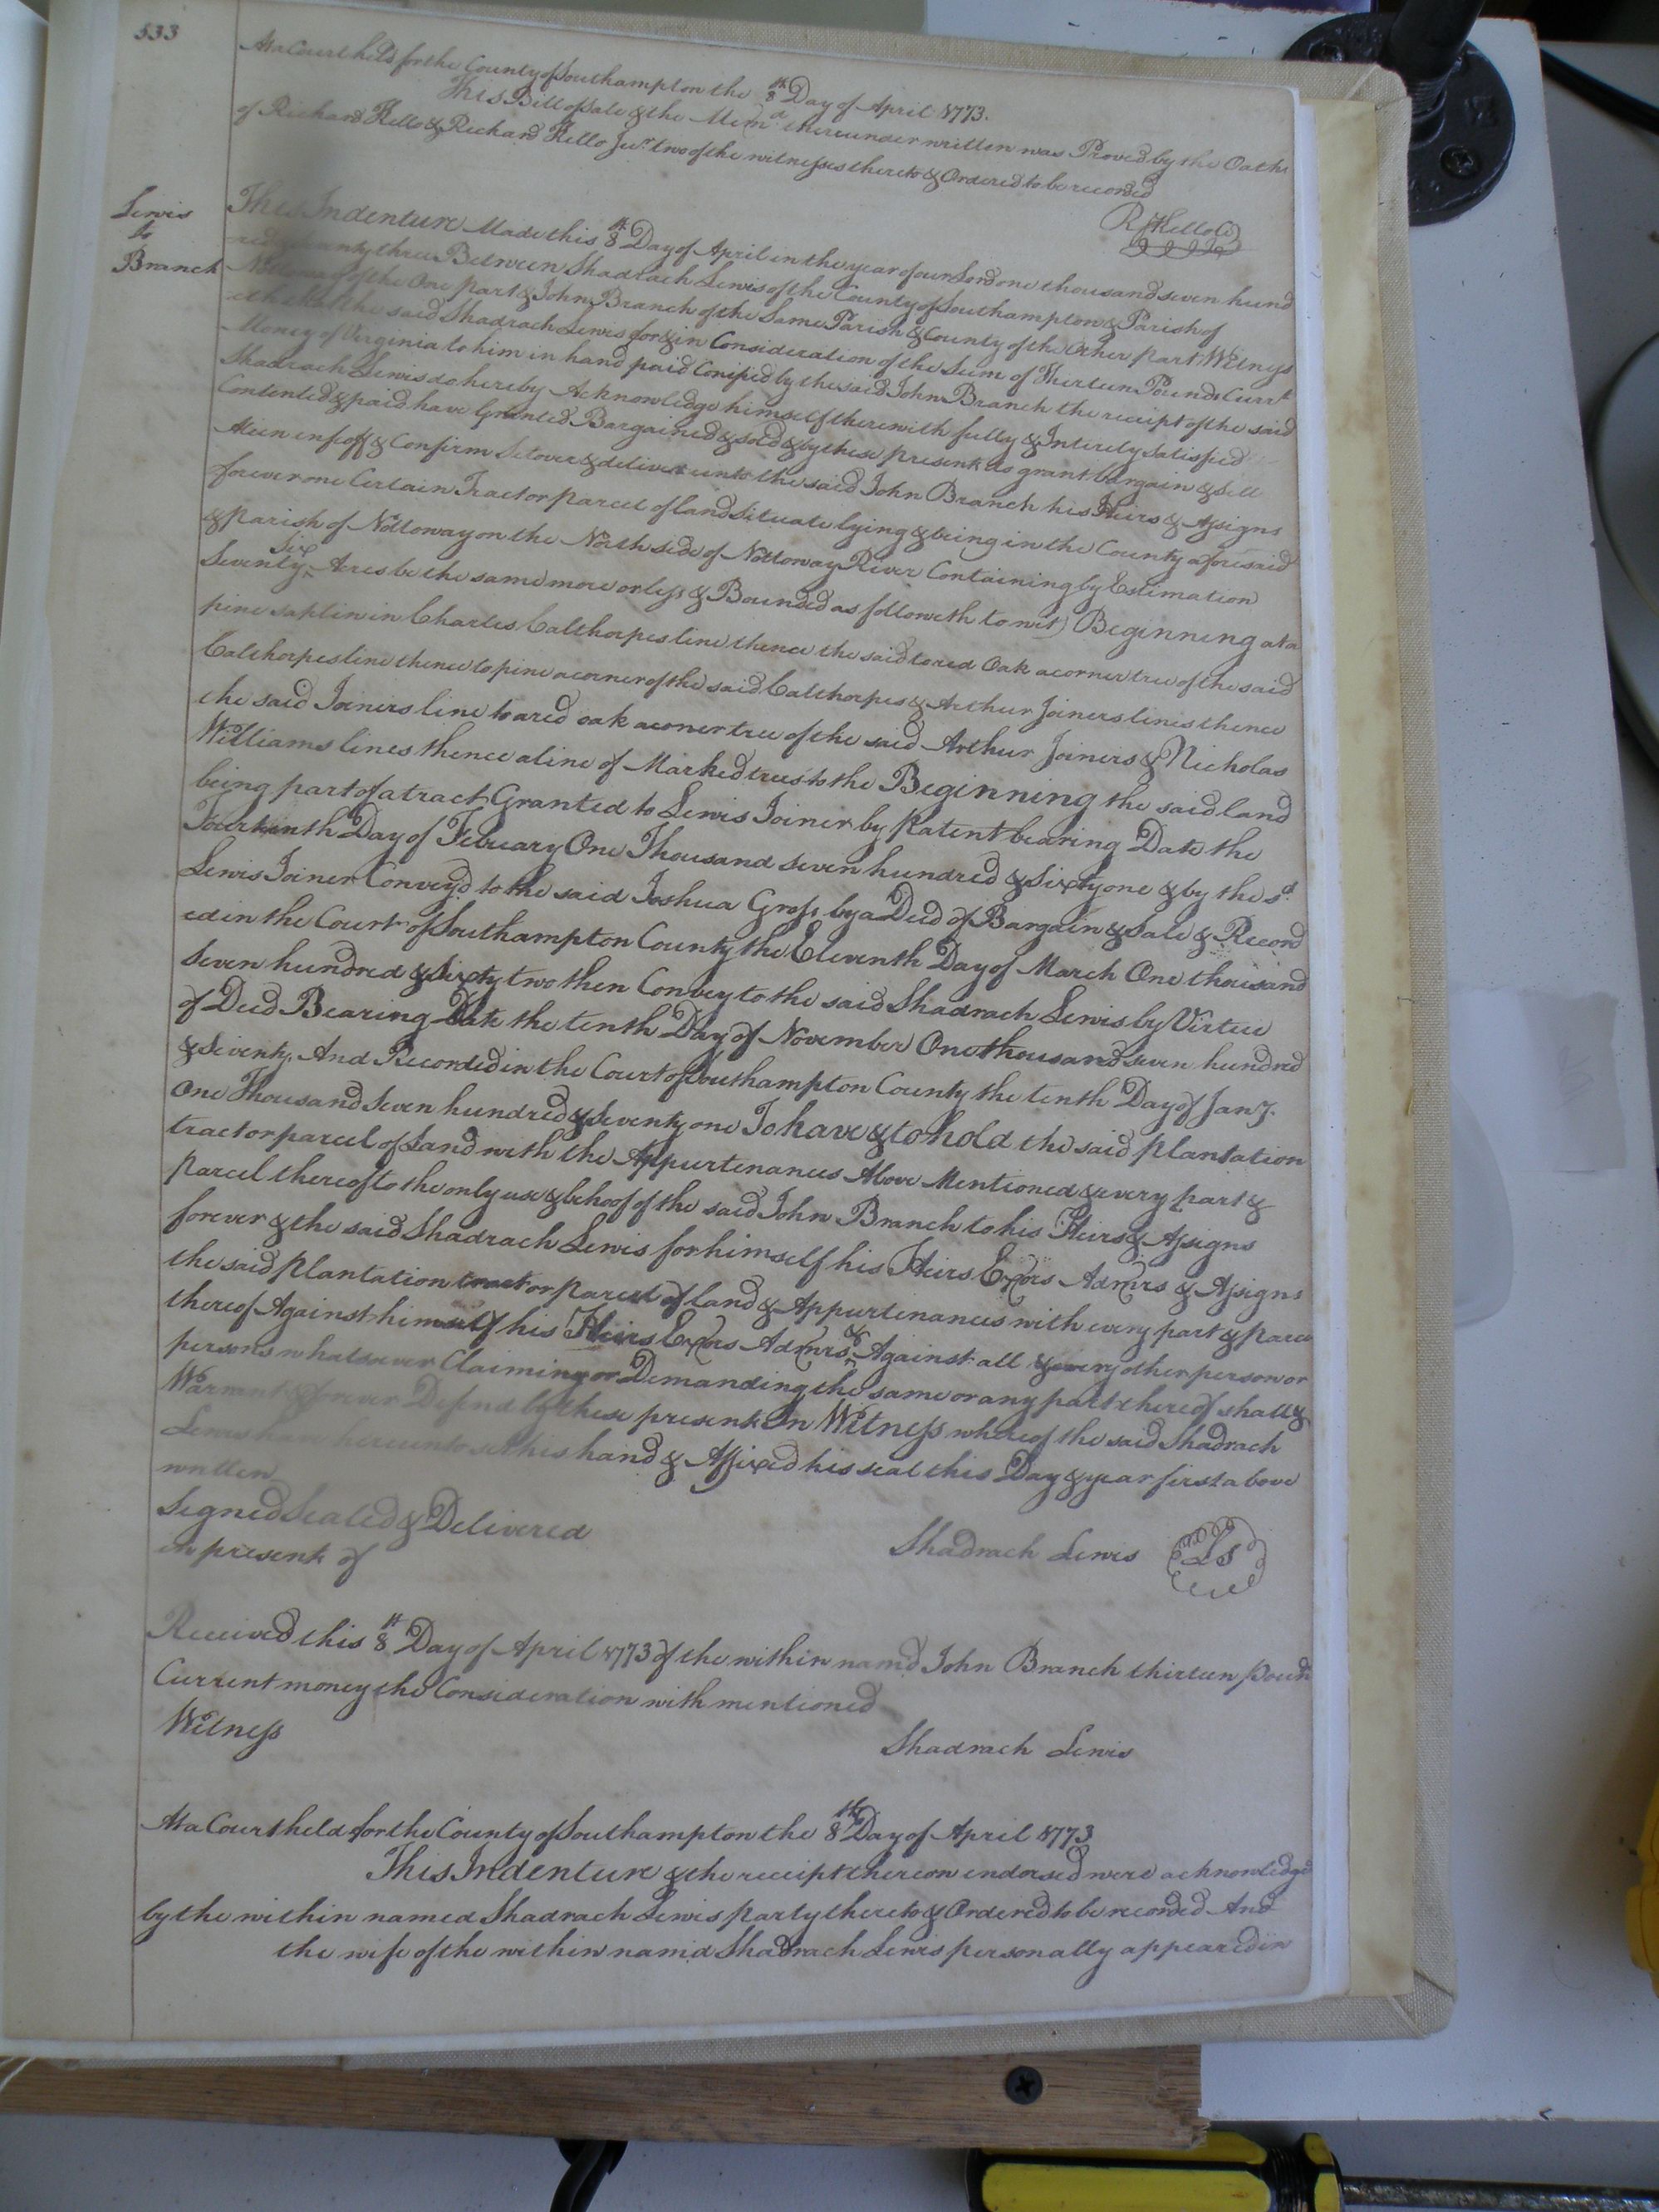 533
At a Court held for the County of Southampton the 8th Day of April 1773.
This Bill of Sale & the Memd. thereunder written was Proved by the Oaths
of Richard Kello & Richard Kello Junr. two of the witnesses thereto & Ordered to be recorded
R Kello
Lewis
to
Branch
This Indenture Made this 8th Day of April in the year of our Lord one thousand seven hund
red & seventy three Between Shadrach Lewis of the County of Southampton & Parish of
Nottoway of the One part & John Branch of the Same Parish & County of the Other part Witness
eth that the said Shadrach Lewis for & in Consideration of the Sum of Thirteen Pounds Currt.
Money of Virginia to him in hand paid by the said John Branch the receipt of the said
Shadrach Lewis do hereby Acknowledge himself therewith fully & Intirely Satisfied
Contented & paid have Granted Bargained & sold & by these presents do grant bargain & Sell
Alien enfeoff & Confirm Setover & deliver unto the said John Branch his Heirs & Assigns
forever one Certain Tract or parcel of land Situate lying & being in the County aforesaid
& parish of Nottoway on the North side of Nottoway River Containing by Estimation
Seventy Six Acres be the same more or less & Bounded as followeth to wit) Beginning at a
pine saplin in Charles Calthorpes line thence the said to red Oak a corner tree of the said
Calthorpes line thence to pine a corner of the said Calthorpes & Arthur Joiners lines thence
the said Joiners line to a red oak a corner tree of the said Arthur Joiners & Nicholas
Williams lines thence a line of Marked trees to the Beginning the said land
being part of a tract Granted to Lewis Joiner by Patent bearing Date the
Fourteenth Day of Febuary One Thousand seven hundred & Sixty one & by the sd.
Lewis Joiner Convey'd to the said Joshua Gross by a Deed of Bargain & Sale & Record
ed in the Court of Southampton County the Eleventh Day of March One thousand
Seven hundred & Sixty two then Convey to the said Shadrach Lewis by Virtue
of Deed Bearing Date the tenth Day of November One thousand seven hundred
& Seventy, And Recorded in the Court of Southampton County the tenth Day of Jany.
One Thousand Seven hundred & Seventy one To have & to hold the said plantation
tract or parcel of Land with the Appurtenances Above Mentioned & every part &
Parcel thereof to the only use & behoof of the said John Branch to his Heirs & Assigns
forever & the said Shadrach Lewis for himself his Heirs Exors Admrs & Assigns
the said plantation tract or parcel of land & Appurtinances with every part & parce
thereof Against himself his Heirs Exors Admrs & Against all & every other person or
persons whatsoever Claiming or Demanding the same or any part thereof shall &
Warrant & forever Defend by these presents In Witness whereof the said Shadrach
Lewis have hereunto set his hand & Affixed his seal this Day & year first above
written
Signed Sealed & Delivered
in presents of
Shadrach Lewis Ls
Received this 8th Day of April 1773 of the within namd John Branch thirteen pound
Current money the Consideration with mentioned
Witness
Shadrach Lewis
At a Court held for the County of Southampton the 8th Day of April 1773
This Indenture & the receipt thereon endorsed were acknowledge
by the within named Shadrach Lewis party thereto & Ordered to be recorded And
the wife of the within namid Shadrach Lewis personally appeared in